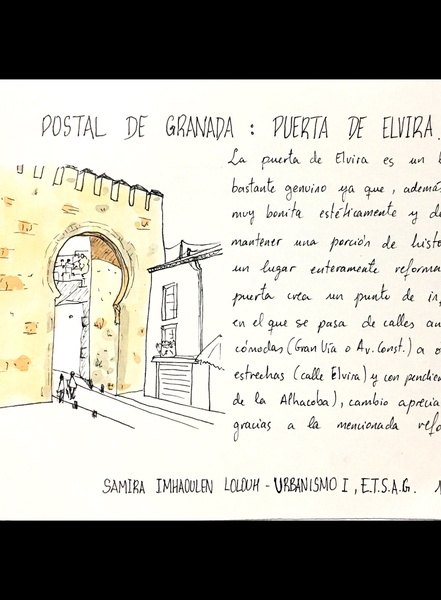 POSTAL DE GRANADA : PUERTA DE ELVIRA.
La puerta de Elvira es un
bastante genuino ya que, además
muy bonita estéticamente y d
mantener una porción de histo
un lugar enteramente reforma
puerta crea un punto de in
en el que se pasa de calles
cómodas (Gran Vía o Av. Const.) a
estrechas (calle Elvira) y con pendien
de la Alhacaba), cambio aprecia
gracias a la mencionada refo
SAMIRA IMHAOULEN LOLOUH - URBANISMO I, E.T.S.A.G. 1